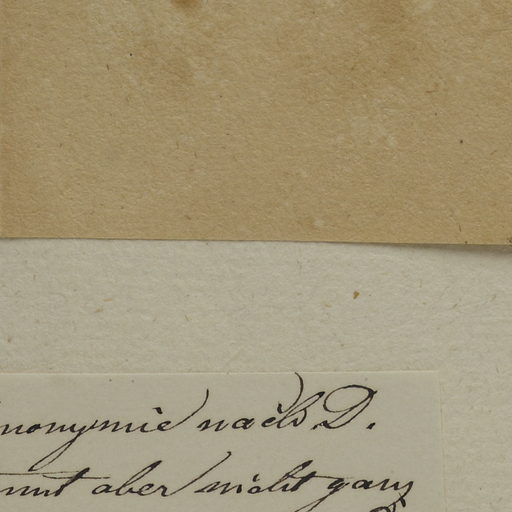 nonymie nach D.
mt aber nicht ganz